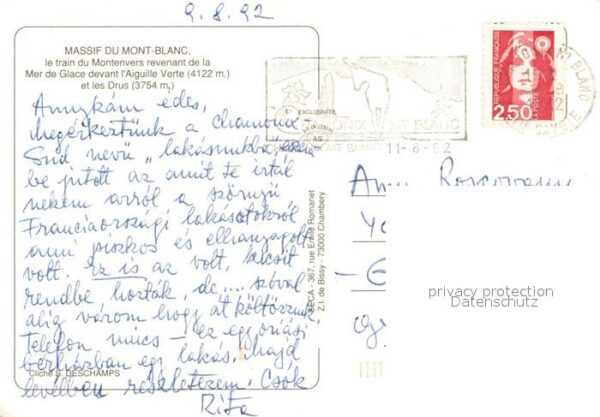 9.8.92
MASSIF DU MONT-BLANC,
le train du Montenvers revenant de la
Mer de Glace devant l'Aiguille Verte (4122 m.)
et les Drus (3754 m.)
Anyukám édes,
megérkeztünk a chamonix-
Sud nevű "lakásunkba",
be jutott az amit te írtál
nekem arról a szörnyű
Franciaországi lakásotokról
ami piszkos és elhanyagolt
volt. Ez is az volt, kicsit
rendbe hozták, de.... szóval
alig várom hogy átköltözzünk,
telefon nincs – ez egy óriási
bérházban egy lakás. Majd
levélben részletezem. Csók
Rita
Cliché S. DESCHAMPS
367, rue Emile Romanet
Z.I. de Bissy - 73000 Chambéry
EXCLUSIVITÉ
MONT BLANC 11-8-92
MONT BLANC
REPUBLIQUE FRANÇAISE
LA POSTE
2,50
Roscovany
privacy protection
Datenschutz